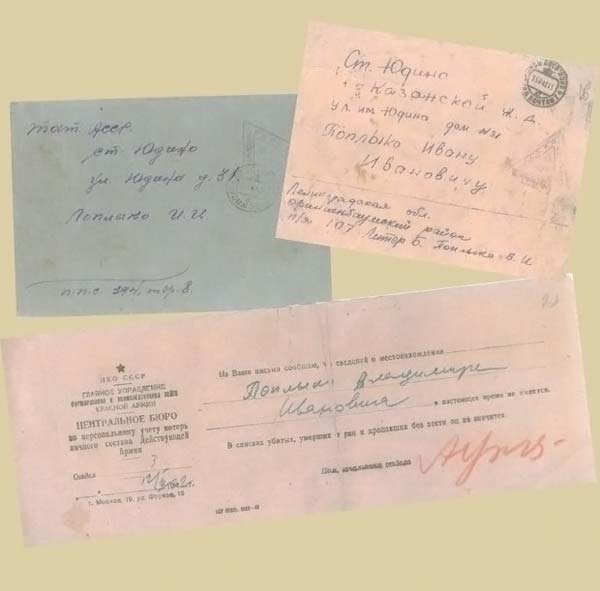 Тат. АССР.
ст. Юдино
ул. Юдина д. 31.
Поплыко И. И
п.п.с.
Ст. Юдино
Казанской ж. д.
ул им Юдина дом №31
Поплыко Ивану
Ивановичу
Ленинградская обл.
ораниенбаумский район
п/я 107 Литер Б. Поплыко В. И
НКО СССР
ГЛАВНОЕ УПРАВЛЕНИЕ
формирования и укомплектования войск
КРАСНОЙ АРМИИ
ЦЕНТРАЛЬНОЕ БЮРО
по персональному учету потерь
личного состава Действующей
Армии
Отдел
г. Москва, 19, ул. Фрунзе, 19
На Ваше письмо сообщаю, что сведений о местонахождении
Поплыко Владимире
Ивановича в настоящее время не имеется.
В списках убитых, умерших от ран и пропавших без вести он не значится
Пом. начальника отдела